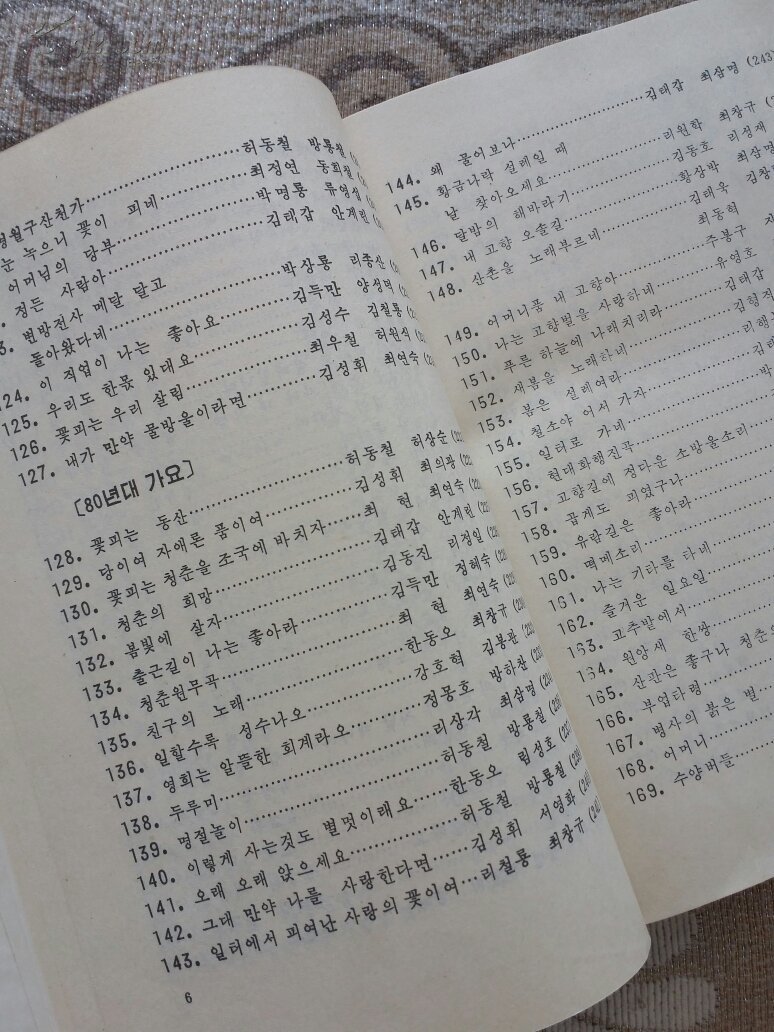 명월구산천가……허동철 방룡철
눈 녹으니 꽃이 피네……최정연 동희철
어머님의 당부……박명룡 류영섭
정든 사람아……김태갑 안계린
변방전사 메달 달고
돌아왔다네……박상룡 리종산
124. 이 직업이 나는 좋아요……김득만 양성덕
125. 우리도 한몫 있대요……김성수 김철룡
126. 꽃피는 우리 살림……최우철 허원식
127. 내가 만약 물방울이라면……김성휘 최연숙
〔80년대 가요〕
128. 꽃피는 동산……허동철 허상순
129. 당이여 자애론 품이여……김성휘 최의광
130. 꽃피는 청춘을 조국에 바치자……최 현 최연숙
131. 청춘의 희망……김태갑 안계린
132. 봄빛에 살자……김동진 리정일
133. 출근길이 나는 좋아라……김득만 정혜숙
134. 청춘원무곡……최 현 최연숙
135. 친구의 노래……한동오 최창규
136. 일할수록 성수나오……강호혁 김봉관
137. 영희는 알뜰한 회계라오……정몽호 방하찬
138. 두루미……리상각 최삼명
139. 명절놀이……허동철 방룡철
140. 이렇게 사는것도 별멋이래요……한동오 림성호
141. 오래 오래 앉으세요……허동철 방룡철
142. 그대 만약 나를 사랑한다면……김성휘 서영화
143. 일터에서 피여난 사랑의 꽃이여…리철룡 최창규
6
……김태갑 최삼명 (243)
144. 왜 물어보나……리원학 최창규
145. 황금나락 설레일 때
날 찾아오세요……김동호 리성재
146. 달밤의 해바라기……황상박 최삼명
147. 내 고향 오솔길……김태욱 김창
148. 산촌을 노래부르네……최동혁
149. 어머니품 내 고향아……주봉구
150. 나는 고향벌을 사랑하네……유영호
151. 푸른 하늘에 나래치리라……김태갑
152. 새봄을 노래하네……김형직
153. 봄은 설레여라……리행
154. 철소야 어서 가자……김태
155. 일터로 가네……박
156. 현대화행진곡
157. 고향길에 정다운 소방울소리
158. 곱게도 피였구나
159. 유람길은 좋아라
160. 떡메소리
161. 나는 기타를 타네
162. 즐거운 일요일
163. 고추밭에서
164. 원앙새 한쌍
165. 산판은 좋구나 청춘의
166. 부업타령
167. 병사의 붉은 별
168. 어머니
169. 수양버들